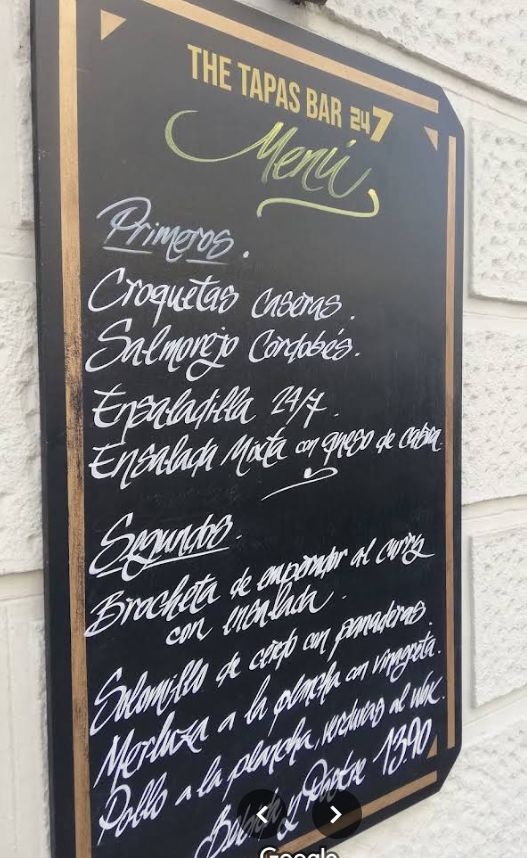 THE TAPAS BAR 247
Menú
Primeros.
Croquetas caseras.
Salmorejo Cordobés.
Ensaladilla 24/7.
Ensalada Mixta con queso de cabra
Segundos.
Brocheta de emperador al curry
con ensalada.
Solomillo de cerdo con panaderas.
Merluza a la plancha con vinagreta.
Pollo a la plancha, verduras al wok.
Bebida y Postre 13.90
Google